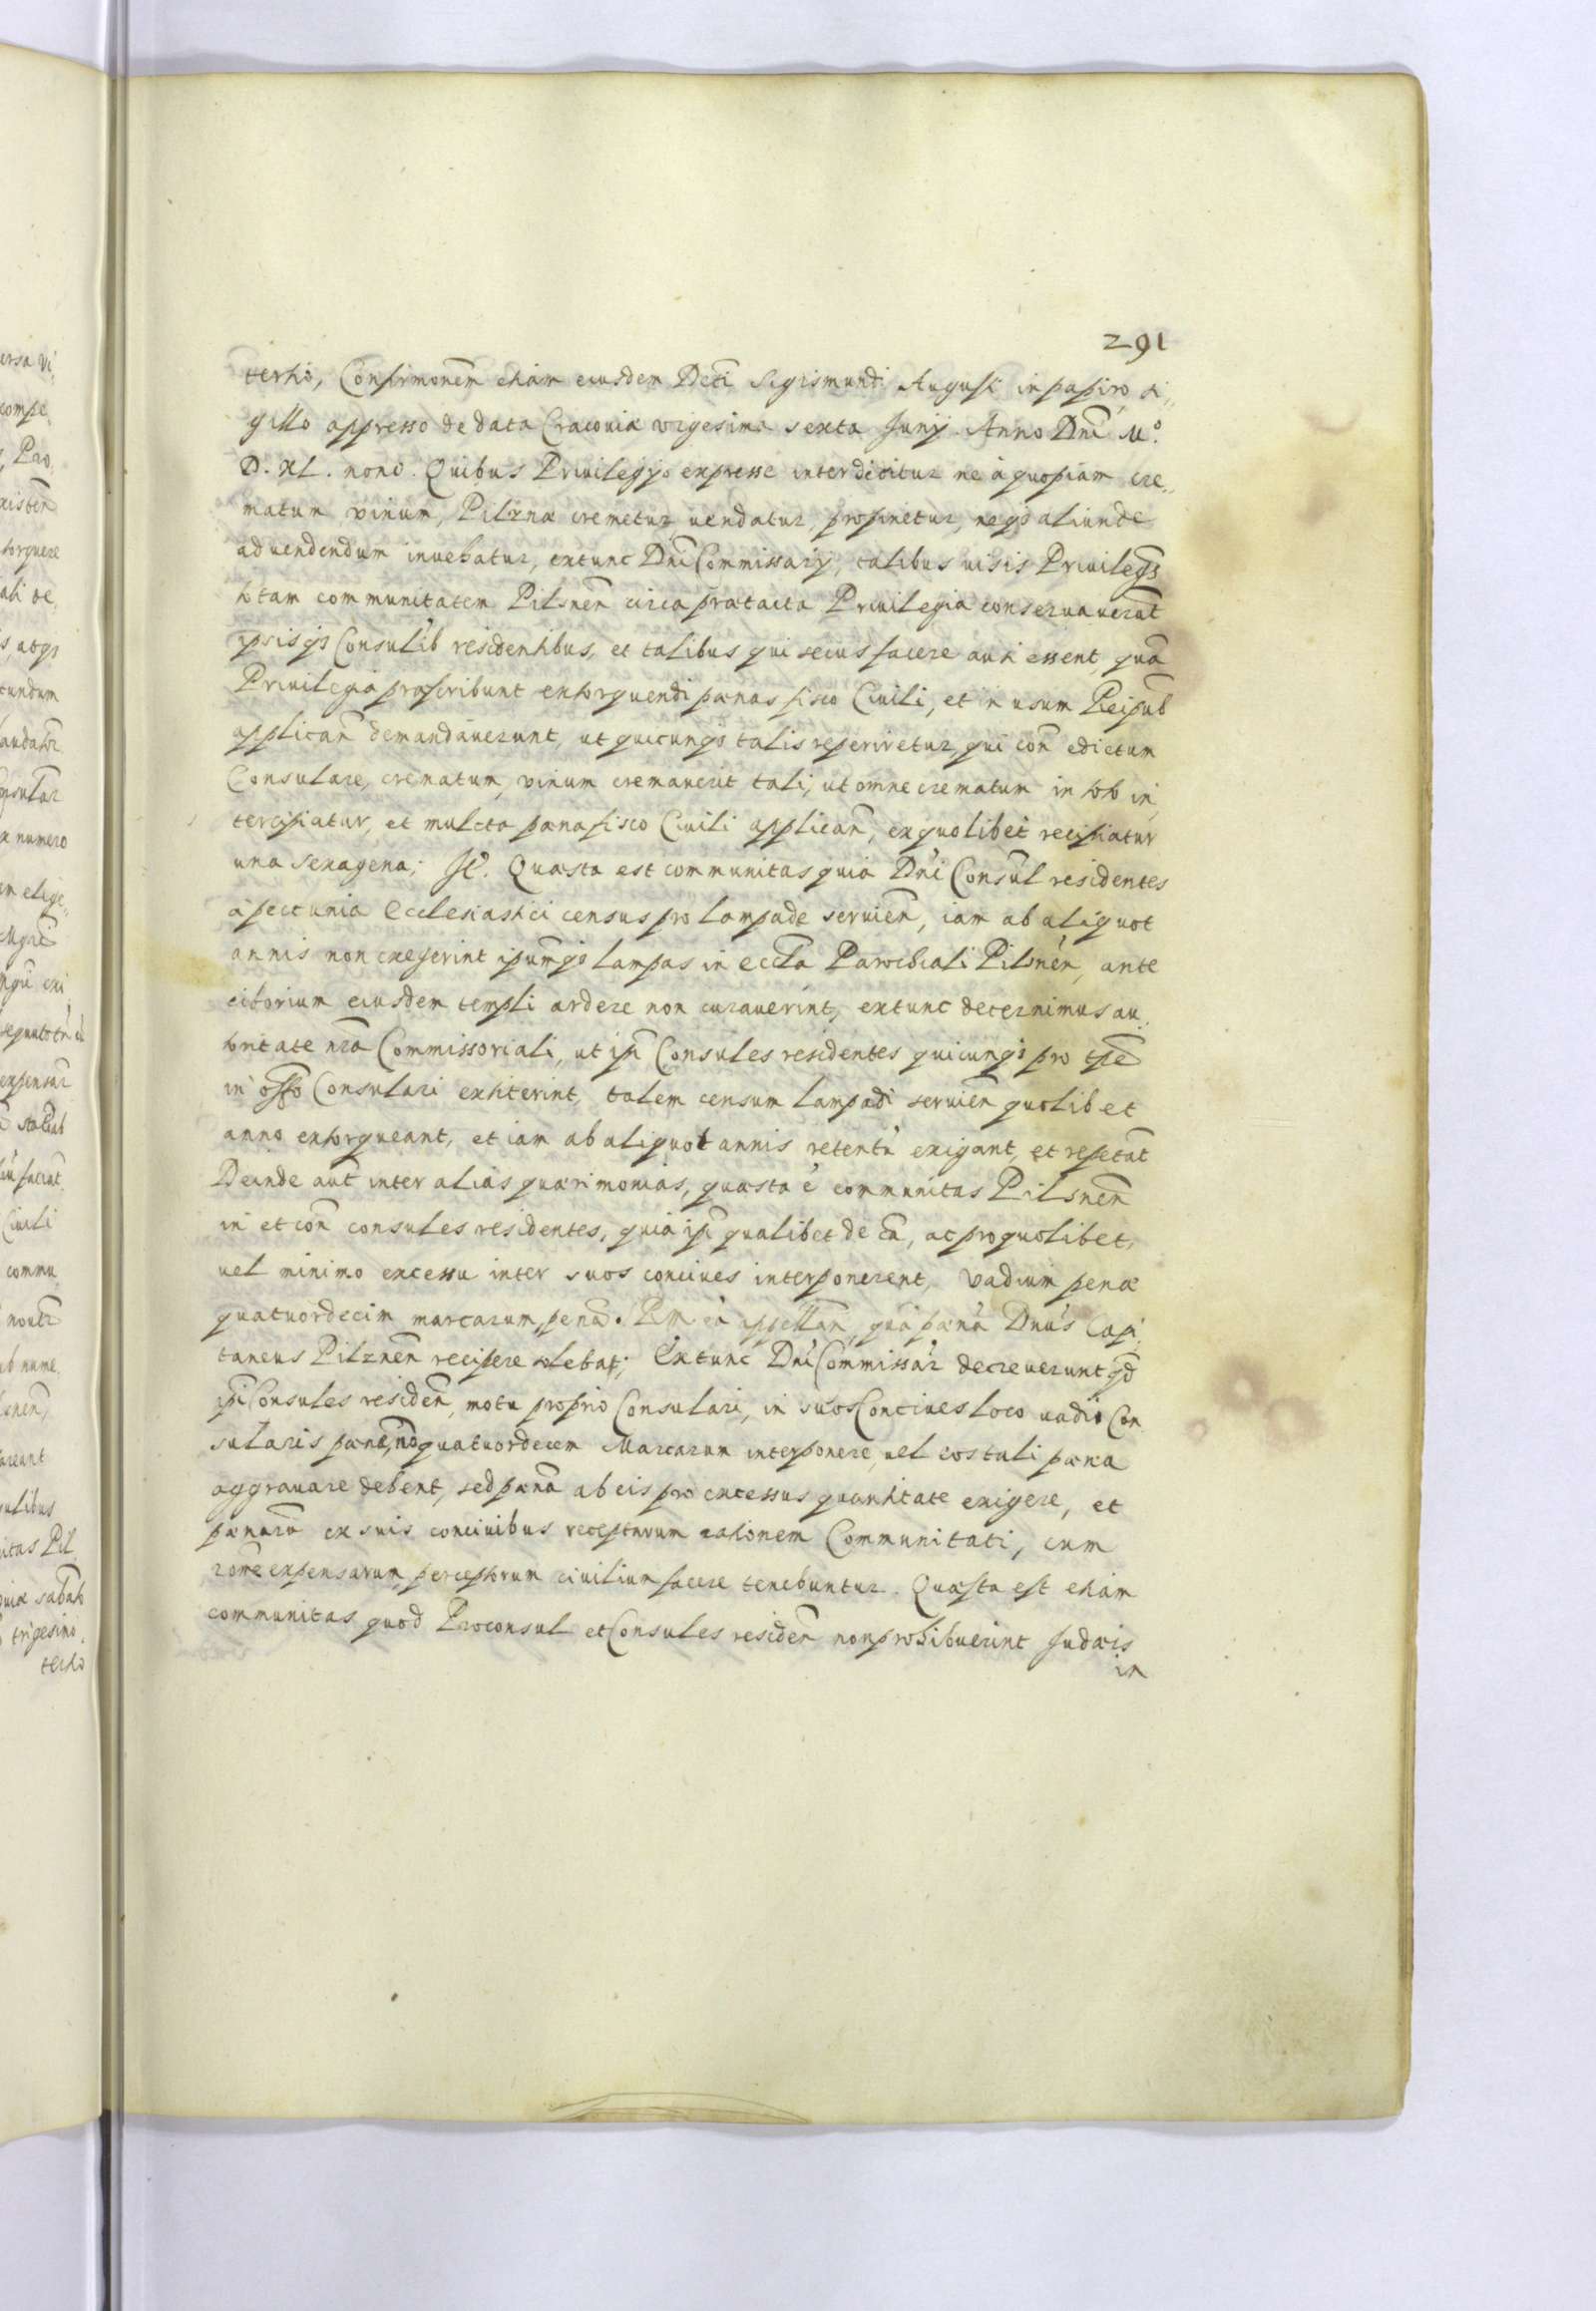 291
tertio, Confirmonem etiam eiusdem Dcti Sigismundi Augusti in papiro si,,
gillo appresso de data Cracoviæ vigesima sexta Junÿ Anno Dni Mº.
D. XL. nono. Quibus Privilegÿs expresse interdicitur ne à quopiam cre,,
matum vinum, Pilznæ cremetur, uendatur, propinetur, neqз aliunde
ad uendendum inuehatur, extunc Dni Commissarÿ, talibus uisis Privilegÿs
totam communitatem Pilsnen circa prætacta Privilegia conservaverunt
ipsisqз Consulib residentibus, et talibus qui secius facere ausi essent, quã
Privilegia præscribunt extorquendi pænas fisco Civili, et in usum Reipub
applican demandaverunt, ut quicunqз talis reperiretur, qui con edictum
Consulare, crematum, vinum cremaverit tali, ut omne crematum in toto in,
tercipiatur, et mulcta pæna fisco Civili applican, ex quolibet recipiatur
una sexagena; It. Quæsta est communitas quia Dni Consul residentes
à pecunia Ecclesiastici census pro lampade servien, iam ab aliquot
annis non exegerint ipsumqз lampas in eccla Parochiali Pilsnen, ante
ciborium eiusdem templi ardere non curaverint, extunc decernimus au,
toritate nra Commissoriali, ut ipi Consules residentes quicunqз pro tpe
in offo Consulari extiterint, talem censum lampadi servien quolibet
anno extorqueant, et iam ab aliquot annis retentũ exigant, et repetant
Deinde aut inter alias quærimonias, quæsta ẽ communitas Pilsnen
in et con consules residentes, quia ipi qualibet de cã, ac pro quolibet,
uel minimo excessu inter suos concives interponerent, vadium penæ
quatuordecim marcarum, penã. appellan, quã pænã Dnus Capi,
taneus Pilznen recipere solebat; Extunc Dni Commissar decreverunt qd
ipi Consules residen, motu proprio Consulari, in suos Concives loco uadii Con
sularis pænæ, no quatuordecem Marcarum interponere, uel eos tali pæna
aggravare debent, sed pænã ab eis pro excessus quantitate exigere, et
pænarũ ex suis concivibus receptarum rationem Communitati, cum
rone expensarum, perceptorum civilium facere tenebuntur. Quæsta est etiam
communitas quod Proconsul et Consules residen non prohibuerint Judæis
in